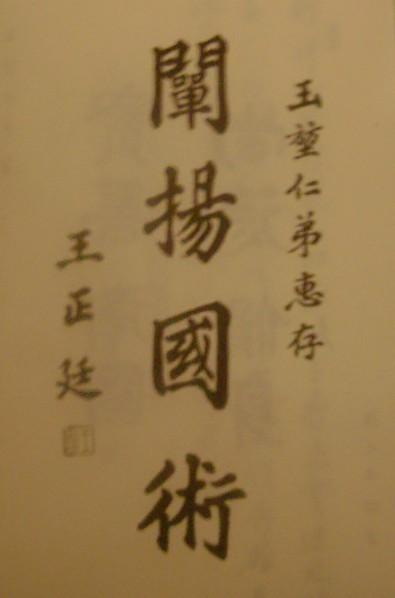 玉堃仁弟惠存
闡揚國術
王正廷